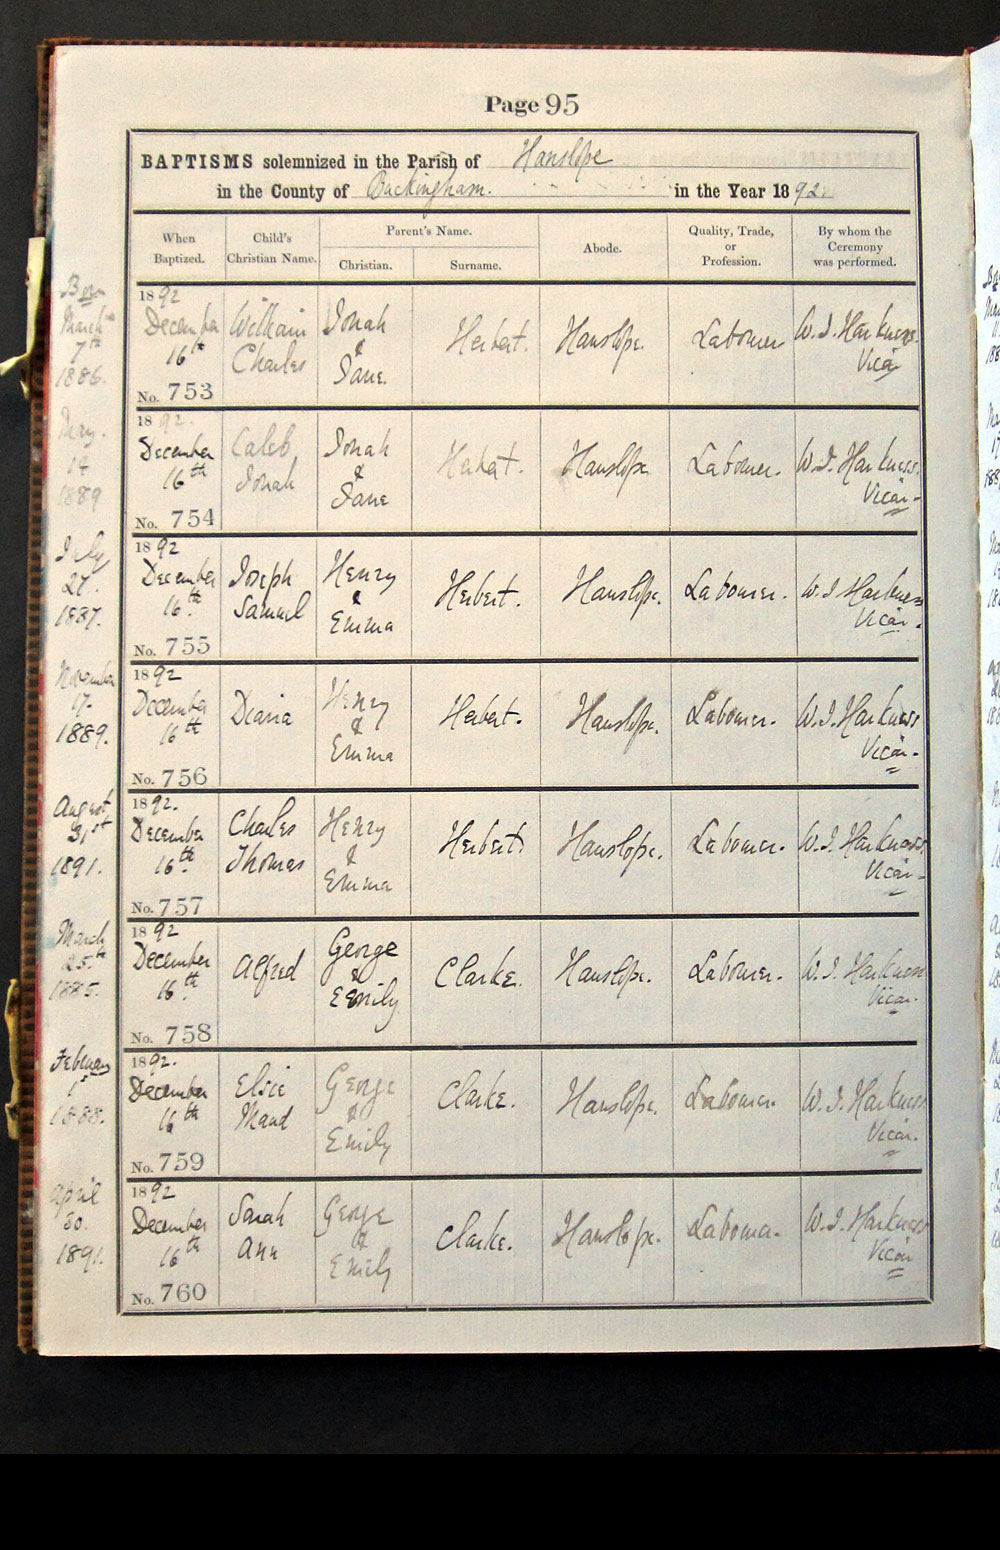 Page 95
BAPTISMS solemnized in the Parish of Hanslope
in the County of Buckingham. in the Year 1892.
When Baptized.
Child's Christian Name.
Parent's Name.
Christian.
Surname.
Abode.
Quality, Trade, or Profession.
By whom the Ceremony was performed.
Born
March
7th
1886.
1892
December
16th
No. 753
William
Charles
Jonah
&
Jane.
Herbert.
Hanslope.
Labourer
W. J. Harkness.
Vicar
May.
14
1889
1892.
December
16th
No. 754
Caleb,
Jonah
Jonah
&
Jane
Herbert.
Hanslope
Labourer.
W. J. Harkness.
Vicar.
July
27.
1887.
1892
December
16th.
No. 755
Joseph
Samuel
Henry
&
Emma
Herbert.
Hanslope.
Labourer.
W. J Harkness
Vicar.
November
17.
1889.
1892
December
16th
No. 756
Diana
Henry
&
Emma
Herbert.
Hanslope.
Labourer.
W. J. Harkness
Vicar.
August
31st
1891.
1892.
December
16th.
No. 757
Charles
Thomas
Henry
&
Emma
Herbert.
Hanslope.
Labourer.
W. J. Harkness.
Vicar.
March
25.th
1885.
1892
December
16th.
No. 758
Alfred
George
&
Emily.
Clarke.
Hanslope.
Labourer.
W. J. Harkness
Vicar.
February
1st
1888.
1892.
December
16th
No. 759
Elsie
Maud
George
&
Emily
Clarke.
Hanslope.
Labourer.
W. J. Harkness
Vicar.
April
30.
1891.
1892
December
16th
No. 760
Sarah
Ann
George
&
Emily
Clarke.
Hanslope.
Labourer.
W. J. Harkness
Vicar